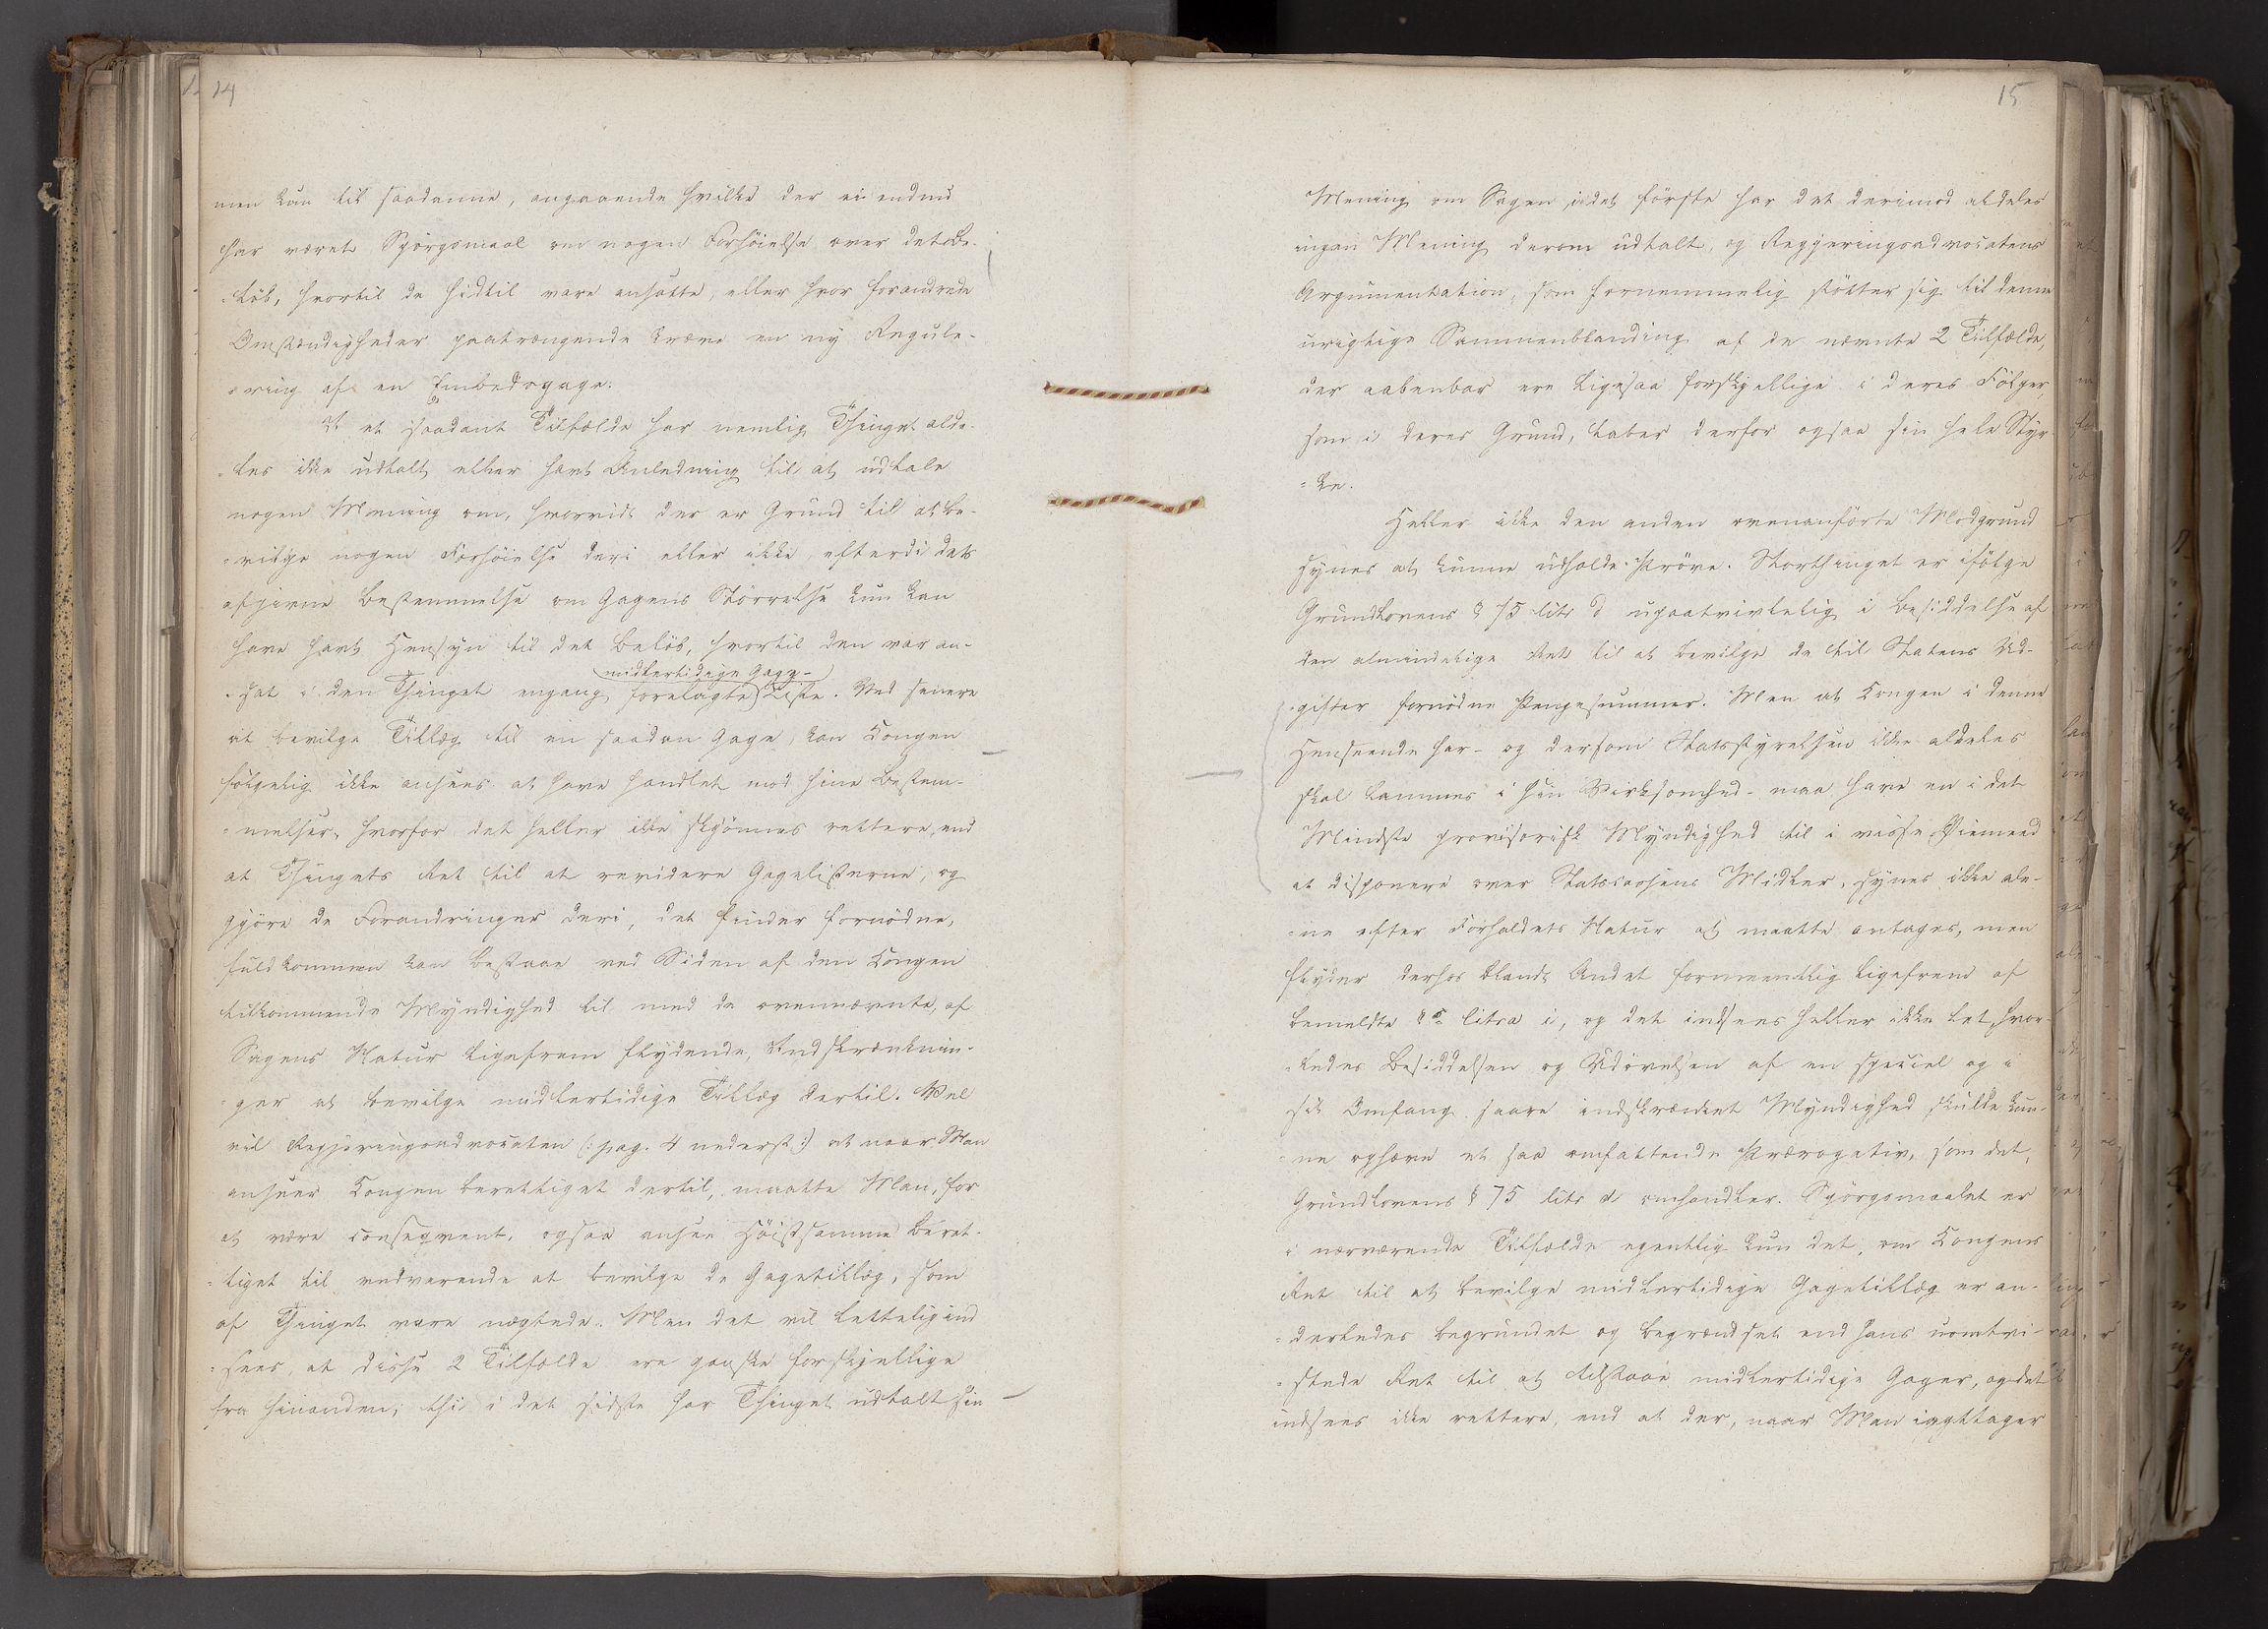 14
men kun til saadanne, angaaende hvilke der ei endnu
har været Spörgsmaal om nogen Forhöielse over det Be-
-löb, hvortil de hidtil vare ansatte, eller hvor forandrede
Omstændigheder paatrængende kræve en ny Regule-
-ring af en Embedsgage.
I et saadant Tilfælde har nemlig Thinget alde-
-les ikke udtalt eller havt Anledning til at udtale
nogen Mening om, hvorvidt der er Grund til at be-
-vilge nogen Forhöielse deri eller ikke, efterdi dets
afgivne Bestemmelse om Gagens Störrelse kun kan
have havt Hensyn til det Belöb, hvortil den var an-
midlertidige Gage-
-sat i den Thinget engang forelagte Liste. Ved senere
at bevilge Tillæg til en saadan Gage, kan Kongen
fölgelig ikke ansees at have handlet mod hine Bestem-
-melser, hvorfor det heller ikke skjönnes rettere, end
at Thingets Ret til at revidere Gagelisterne, og
gjöre de Forandringer deri, det finder fornödne,
fuldkommen kan bestaae ved Siden af den Kongen
tilkommende Myndighed til med de ovennævnte, af
Sagens Natur ligefrem flydende, Indskrænknin-
-ger at bevilge midlertidige Tillæg dertil. Vel
vil Regjeringsadvocaten (: pag. 4 nederst :) at naar Man
ansaae Kongen berettiget dertil, maatte Man, for
at være conseqvent, ogsaa ansee Höistsamme beret-
-tiget til vedvarende at bevilge de Gagetillæg, som
af Thinget vare nægtede. Men det vil lettelig ind
-sees, at disse 2 Tilfælde ere ganske forskjellige
fra hinanden; thi i det sidste har Thinget udtalt sin
15
Mening om Sagen, i det förste har det derimod aldeles
ingen Mening derom udtalt, og Regjeringsadvocatens
Argumentation, som fornemmelig stötter sig til denne
urigtige Sammenblanding af de nævnte 2 Tilfælde,
der aabenbar ere ligesaa forskjellige i deres Fölger,
som i deres Grund, taber derfor ogsaa sin hele Styr-
-ke.
Heller ikke den anden ovenanförte Modgrund
synes at kunne udholde Pröve. Storthinget er ifölge
Grundlovens § 75 litr d upaatvivlelig i Besiddelse af
den almindelige Ret til at bevilge de til Statens Ud-
-gifter fornödne Pengesummer. Men at Kongen i denne
Henseende har - og dersom Statsstyrelsen ikke aldeles
skal lammes i sin Virksomhed - maa have en i det
Mindste provisorisk Myndighed til i visse Öiemeed
at disponere over Statscassens Midler, synes ikke ale-
-ne efter Forholdets Natur at maatte antages, men
flyder derhos blandt Andet formeentlig ligefrem af
bemeldte §s litra i, og det indsees heller ikke let, hvor-
-ledes Besiddelsen og Udövelsen af en speciel og i
sit Omfang saare indskrænket Myndighed skulde kun-
-ne ophæve et saa omfattende Prærogativ, som det,
Grundlovens § 75 litr d omhandler. Spörgsmaalet er
i nærværende Tilfælde egentlig kun det, om Kongens
Ret til at bevilge midlertidige Gagetillæg er an-
-derledes begrundet og begrændset end hans uomtvi-
-stede Ret til at tilstaae midlertidige Gager, og det
indsees ikke rettere, end at der, naar Man iagttager